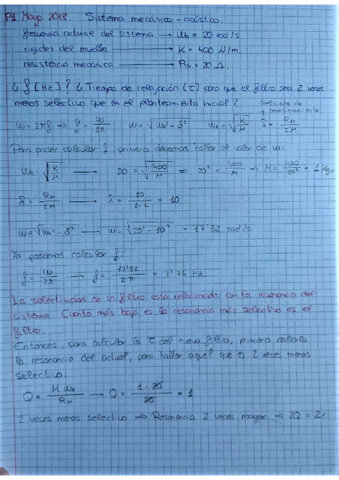 P1 Mayo 2018. Sistema mecánico-acústico.
frecuencia natural del sistema → ω₀ = 20 rad/s
rigidez del muelle → K = 400 N/m.
resistencia mecánica → Rₘ = 20 Ω
¿ f [Hz] ? ¿ Tiempo de relajación (τ) para que el filtro sea 2 veces
menos selectivo que en el planteamiento inicial ?
ω = 2πf ⇒ f = ω/2π ω = √(ω₀² - δ²) ω₀ = √(K/M) δ = Rₘ/2M
Para poder calcular f, primero debemos hallar el valor de ω.
ω₀ = √(K/M) → 20 = √(400/M) → 20² = 400/M → M = 400/20² = 1 kg
δ = Rₘ/2M → δ = 20/2·1 = 10
ω = √(ω₀² - δ²) → ω = √(20² - 10²) = 17'32 rad/s
Ya podemos calcular f:
f = ω/2π → f = 17'32/2π = 2'76 Hz
La selectividad de un filtro está relacionada con la resonancia del
sistema. Cuanto más baja es la resonancia más selectivo es el
filtro.
Entonces, para calcular la τ del nuevo filtro, primero calculo
la resonancia del actual, para hallar aquel que es 2 veces menos
selectivo.
Q = M ω₀/Rₘ → Q = 1·20/20 = 1
2 veces menos selectivo ⇒ Resonancia 2 veces mayor ⇒ 2Q = 2